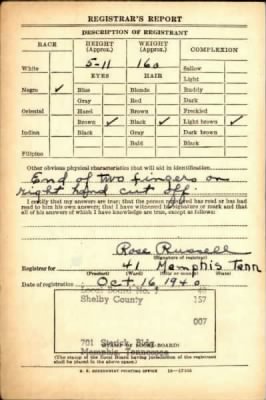 REGISTRAR'S REPORT
DESCRIPTION OF REGISTRANT
RACE
HEIGHT (Approx.)
WEIGHT (Approx.)
COMPLEXION
5-11
160
White
EYES
HAIR
Sallow
Light
Negro ✓
Blue
Blonde
Ruddy
Gray
Red
Dark
Oriental
Hazel
Brown
Freckled
Brown ✓
Black ✓
Light brown ✓
Indian
Black
Gray
Dark brown
Bald
Black
Filipino
Other obvious physical characteristics that will aid in identification
End of two fingers on
right hand cut off.
I certify that my answers are true; that the person registered has read or has had
read to him his own answers; that I have witnessed his signature or mark and that
all of his answers of which I have knowledge are true, except as follows:
Rose Russell
(Signature of registrar)
Registrar for 41 Memphis Tenn
(Precinct) (Ward) (City or county) (State)
Date of registration Oct 16 1940
Local Board No.
Shelby County
157
007
701 Sterick Bldg
Memphis, Tennessee
(STAMP OF LOCAL BOARD)
(The stamp of the Local Board having jurisdiction of the registrant
shall be placed in the above space.)
U. S. GOVERNMENT PRINTING OFFICE